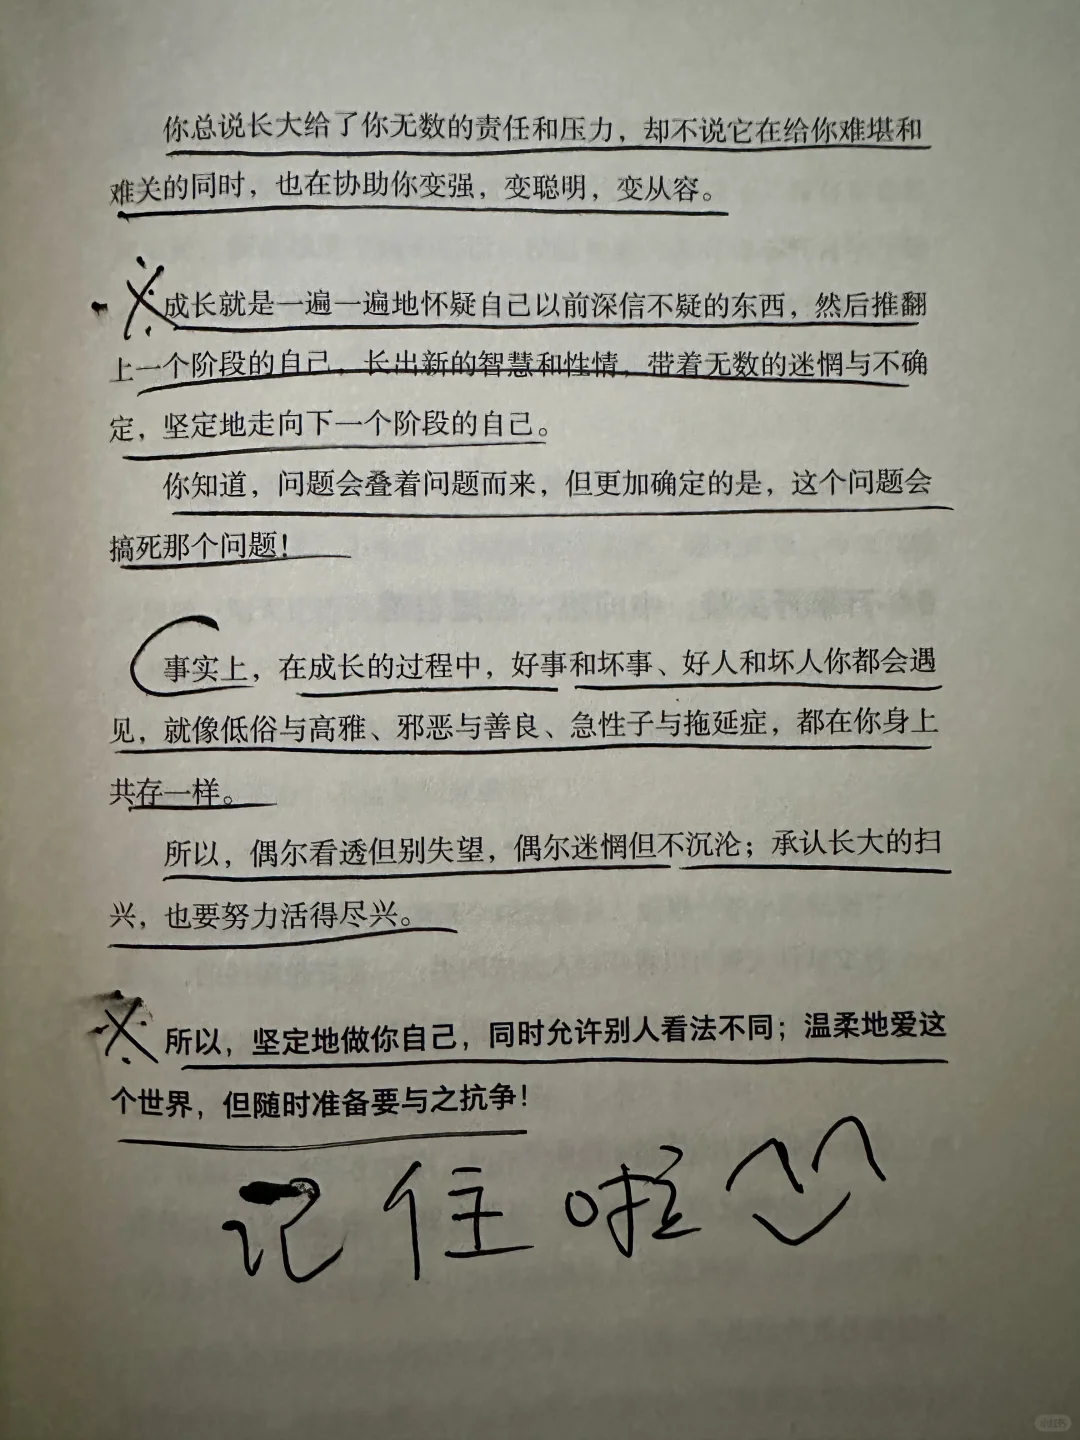 你总说长大给了你无数的责任和压力，却不说它在给你难堪和
难关的同时，也在协助你变强，变聪明，变从容。
※成长就是一遍一遍地怀疑自己以前深信不疑的东西，然后推翻
上一个阶段的自己，长出新的智慧和性情，带着无数的迷惘与不确
定，坚定地走向下一个阶段的自己。
你知道，问题会叠着问题而来，但更加确定的是，这个问题会
搞死那个问题！
事实上，在成长的过程中，好事和坏事、好人和坏人你都会遇
见，就像低俗与高雅、邪恶与善良、急性子与拖延症，都在你身上
共存一样。
所以，偶尔看透但别失望，偶尔迷惘但不沉沦；承认长大的扫
兴，也要努力活得尽兴。
※所以，坚定地做你自己，同时允许别人看法不同；温柔地爱这
个世界，但随时准备要与之抗争！
记住啦
小红书